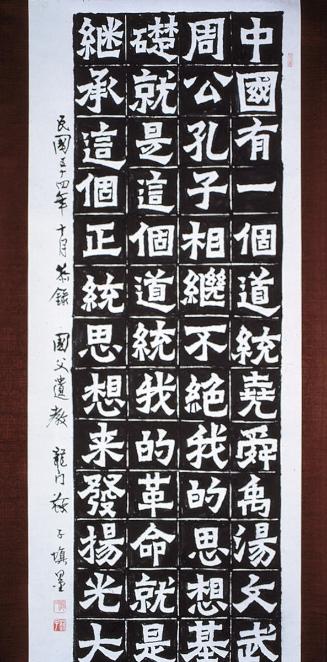 中國有一個道統堯舜禹湯文武
周公孔子相繼不絕我的思想基
礎就是這個道統我的革命就是
继承這個正統思想来發揚光大
民國五十四年十月恭錄 國父遺教 龍門 子填墨